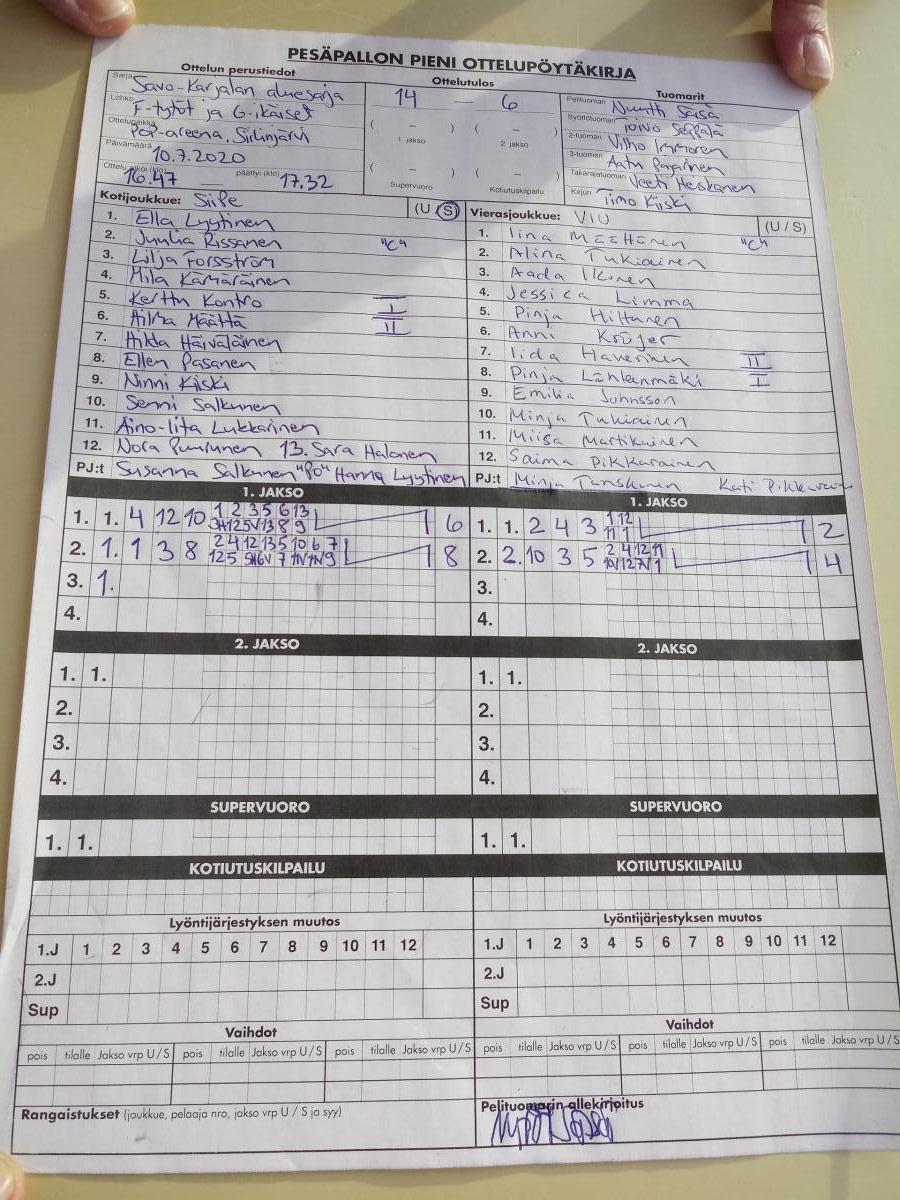 PESÄPALLON PIENI OTTELUPÖYTÄKIRJA
Ottelun perustiedot
Ottelutulos
Tuomarit
Sarja Savo-Karjalan aluesarja
Lohko F-tytöt ja G-ikäiset
Ottelupaikka POP-areena, Siilinjärvi
Päivämäärä 10.7.2020
Ottelu alkoi (klo) 16.47 päättyi (klo) 17.32
14 – 6
( – ) ( – )
1 jakso 2 jakso
( – ) ( – )
Supervuoro Kotiutuskilpailu
Pelituomari
Syöttötuomari Toivo Seppälä
2-tuomari Vilho
3-tuomari
Takarajatuomari Veeti Heiskanen
Kirjuri Timo Kiiski
Kotijoukkue: SiiPe (U/S)
1. Ella Lyytinen
2. Juulia Rissanen "C"
3. Lilja Forsström
4. Mila Kämäräinen
5. Kerttu Kontro I
6. Hilma Määttä II
7. Hilda Häiväläinen
8. Ellen Pasanen
9. Ninni Kiiski
10. Senni Salkunen
11. Aino-Iita Lukkarinen
12. Nora Puurunen 13. Sara Halonen
PJ:t Susanna Salkunen "PO" Hanna Lyytinen
Vierasjoukkue: ViU (U/S)
1. Iina Määttänen "C"
2. Alina Tukiainen
3. Aada Ikonen
4. Jessica Limma
5. Pinja Hiltunen
6. Anni Kröger
7. Iida Haverinen II
8. Pinja Lähteenmäki I
9. Emilia Johnsson
10. Minja Tukiainen
11. Miisa Martikainen
12. Saima Pikkarainen
PJ:t Minja Tanskanen Kati Pikkarainen
1. JAKSO
1. 1. 4 12 10 1 2 3 5 6 13 6
2. 1. 1 3 8 2 4 12 13 5 10 6 7 8
3. 1.
4.
1. JAKSO
1. 1. 2 4 3 1 12 11 1 2
2. 2. 10 3 5 2 4 12 11 4
3.
4.
2. JAKSO
1. 1.
2.
3.
4.
2. JAKSO
1. 1.
2.
3.
4.
SUPERVUORO
1. 1.
SUPERVUORO
1. 1.
KOTIUTUSKILPAILU
KOTIUTUSKILPAILU
Lyöntijärjestyksen muutos
1.J 1 2 3 4 5 6 7 8 9 10 11 12
2.J
Sup
Lyöntijärjestyksen muutos
1.J 1 2 3 4 5 6 7 8 9 10 11 12
2.J
Sup
Vaihdot
pois tilalle Jakso vrp U/S pois tilalle Jakso vrp U/S pois tilalle Jakso vrp U/S
Vaihdot
pois tilalle Jakso vrp U/S pois tilalle Jakso vrp U/S pois tilalle Jakso vrp U/S
Rangaistukset (joukkue, pelaaja nro, jakso vrp U / S ja syy)
Pelituomarin allekirjoitus